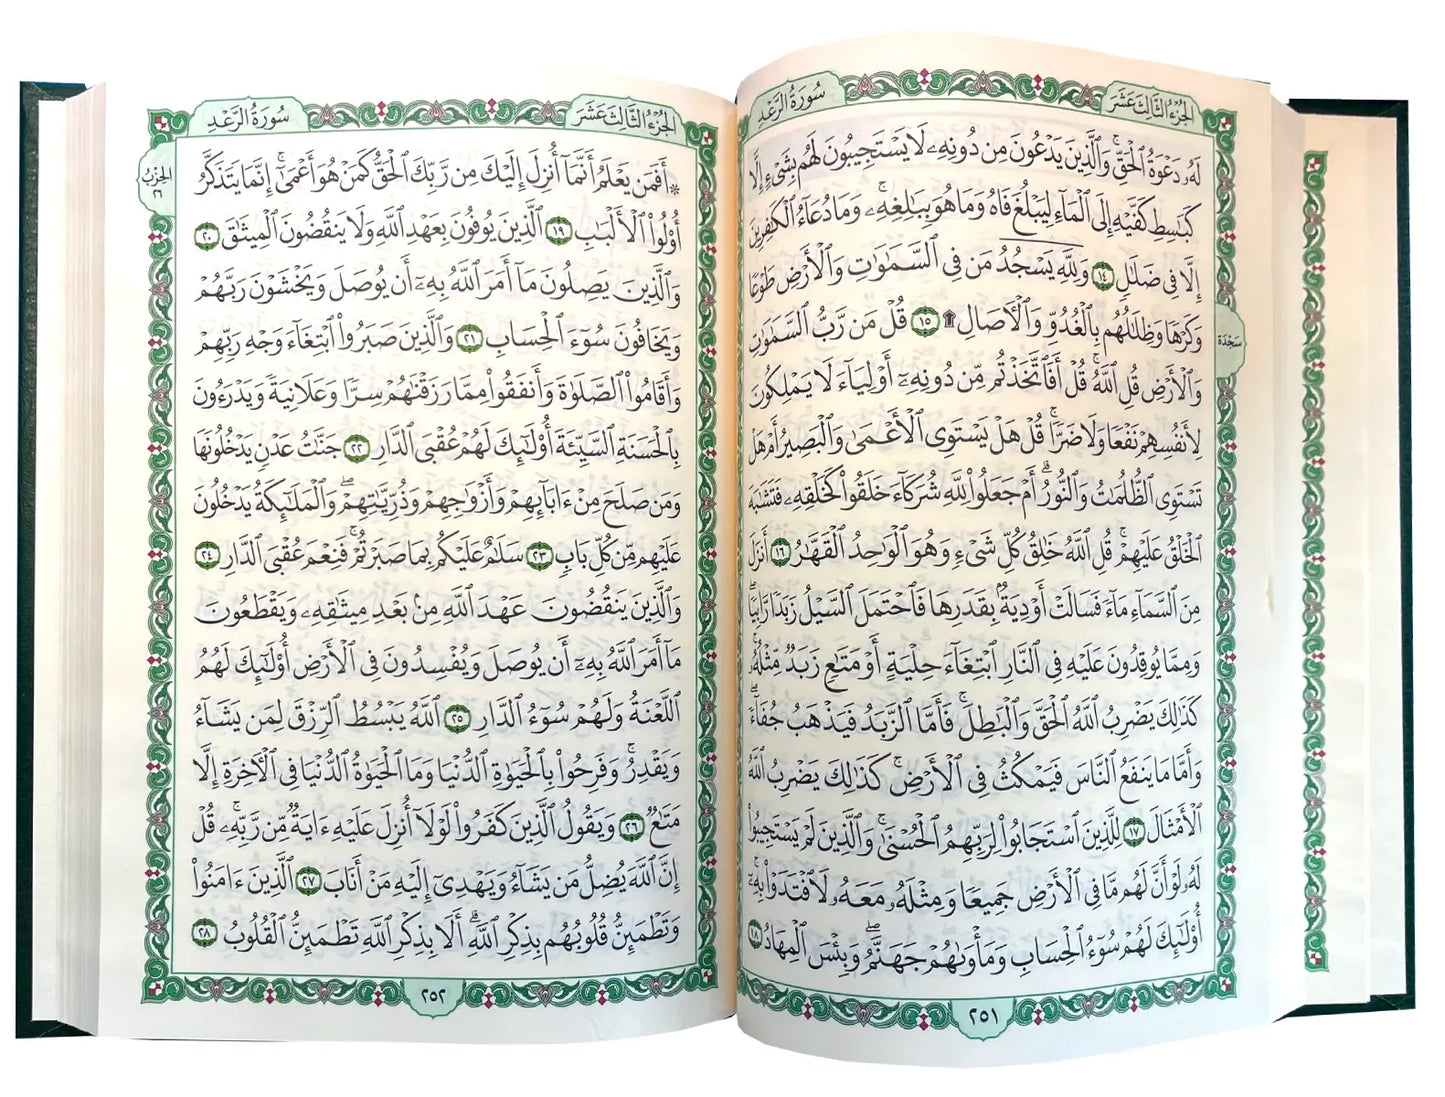 سُورَةُ الرَّعْدِ
الجُزْءُ الثَّالِثَ عَشَرَ
لَهُۥ دَعْوَةُ ٱلْحَقِّۚ وَٱلَّذِينَ يَدْعُونَ مِن دُونِهِۦ لَا يَسْتَجِيبُونَ لَهُم بِشَىْءٍ إِلَّا
كَبَٰسِطِ كَفَّيْهِ إِلَى ٱلْمَآءِ لِيَبْلُغَ فَاهُ وَمَا هُوَ بِبَٰلِغِهِۦۚ وَمَا دُعَآءُ ٱلْكَٰفِرِينَ
إِلَّا فِى ضَلَٰلٍ ١٤ وَلِلَّهِ يَسْجُدُ مَن فِى ٱلسَّمَٰوَٰتِ وَٱلْأَرْضِ طَوْعًا
وَكَرْهًا وَظِلَٰلُهُم بِٱلْغُدُوِّ وَٱلْءَاصَالِ ۩ ١٥ قُلْ مَن رَّبُّ ٱلسَّمَٰوَٰتِ
وَٱلْأَرْضِ قُلِ ٱللَّهُۚ قُلْ أَفَٱتَّخَذْتُم مِّن دُونِهِۦٓ أَوْلِيَآءَ لَا يَمْلِكُونَ
لِأَنفُسِهِمْ نَفْعًا وَلَا ضَرًّاۚ قُلْ هَلْ يَسْتَوِى ٱلْأَعْمَىٰ وَٱلْبَصِيرُ أَمْ هَلْ
تَسْتَوِى ٱلظُّلُمَٰتُ وَٱلنُّورُۗ أَمْ جَعَلُوا۟ لِلَّهِ شُرَكَآءَ خَلَقُوا۟ كَخَلْقِهِۦ فَتَشَٰبَهَ
ٱلْخَلْقُ عَلَيْهِمْۚ قُلِ ٱللَّهُ خَٰلِقُ كُلِّ شَىْءٍ وَهُوَ ٱلْوَٰحِدُ ٱلْقَهَّٰرُ ١٦ أَنزَلَ
مِنَ ٱلسَّمَآءِ مَآءً فَسَالَتْ أَوْدِيَةٌۢ بِقَدَرِهَا فَٱحْتَمَلَ ٱلسَّيْلُ زَبَدًا رَّابِيًاۖ
وَمِمَّا يُوقِدُونَ عَلَيْهِ فِى ٱلنَّارِ ٱبْتِغَآءَ حِلْيَةٍ أَوْ مَتَٰعٍ زَبَدٌ مِّثْلُهُۥۚ
كَذَٰلِكَ يَضْرِبُ ٱللَّهُ ٱلْحَقَّ وَٱلْبَٰطِلَۚ فَأَمَّا ٱلزَّبَدُ فَيَذْهَبُ جُفَآءًۖ
وَأَمَّا مَا يَنفَعُ ٱلنَّاسَ فَيَمْكُثُ فِى ٱلْأَرْضِۚ كَذَٰلِكَ يَضْرِبُ ٱللَّهُ
ٱلْأَمْثَالَ ١٧ لِلَّذِينَ ٱسْتَجَابُوا۟ لِرَبِّهِمُ ٱلْحُسْنَىٰۚ وَٱلَّذِينَ لَمْ يَسْتَجِيبُوا۟
لَهُۥ لَوْ أَنَّ لَهُم مَّا فِى ٱلْأَرْضِ جَمِيعًا وَمِثْلَهُۥ مَعَهُۥ لَٱفْتَدَوْا۟ بِهِۦٓۚ
أُو۟لَٰٓئِكَ لَهُمْ سُوٓءُ ٱلْحِسَابِ وَمَأْوَىٰهُمْ جَهَنَّمُۖ وَبِئْسَ ٱلْمِهَادُ ١٨
سَجْدَة
٢٥١
سُورَةُ الرَّعْدِ
الجُزْءُ الثَّالِثَ عَشَرَ
۞ أَفَمَن يَعْلَمُ أَنَّمَآ أُنزِلَ إِلَيْكَ مِن رَّبِّكَ ٱلْحَقُّ كَمَنْ هُوَ أَعْمَىٰٓۚ إِنَّمَا يَتَذَكَّرُ
أُو۟لُوا۟ ٱلْأَلْبَٰبِ ١٩ ٱلَّذِينَ يُوفُونَ بِعَهْدِ ٱللَّهِ وَلَا يَنقُضُونَ ٱلْمِيثَٰقَ ٢٠
وَٱلَّذِينَ يَصِلُونَ مَآ أَمَرَ ٱللَّهُ بِهِۦٓ أَن يُوصَلَ وَيَخْشَوْنَ رَبَّهُمْ
وَيَخَافُونَ سُوٓءَ ٱلْحِسَابِ ٢١ وَٱلَّذِينَ صَبَرُوا۟ ٱبْتِغَآءَ وَجْهِ رَبِّهِمْ
وَأَقَامُوا۟ ٱلصَّلَوٰةَ وَأَنفَقُوا۟ مِمَّا رَزَقْنَٰهُمْ سِرًّا وَعَلَانِيَةً وَيَدْرَءُونَ
بِٱلْحَسَنَةِ ٱلسَّيِّئَةَ أُو۟لَٰٓئِكَ لَهُمْ عُقْبَى ٱلدَّارِ ٢٢ جَنَّٰتُ عَدْنٍ يَدْخُلُونَهَا
وَمَن صَلَحَ مِنْ ءَابَآئِهِمْ وَأَزْوَٰجِهِمْ وَذُرِّيَّٰتِهِمْۖ وَٱلْمَلَٰٓئِكَةُ يَدْخُلُونَ
عَلَيْهِم مِّن كُلِّ بَابٍ ٢٣ سَلَٰمٌ عَلَيْكُم بِمَا صَبَرْتُمْۚ فَنِعْمَ عُقْبَى ٱلدَّارِ ٢٤
وَٱلَّذِينَ يَنقُضُونَ عَهْدَ ٱللَّهِ مِنۢ بَعْدِ مِيثَٰقِهِۦ وَيَقْطَعُونَ
مَآ أَمَرَ ٱللَّهُ بِهِۦٓ أَن يُوصَلَ وَيُفْسِدُونَ فِى ٱلْأَرْضِ أُو۟لَٰٓئِكَ لَهُمُ
ٱللَّعْنَةُ وَلَهُمْ سُوٓءُ ٱلدَّارِ ٢٥ ٱللَّهُ يَبْسُطُ ٱلرِّزْقَ لِمَن يَشَآءُ
وَيَقْدِرُۚ وَفَرِحُوا۟ بِٱلْحَيَوٰةِ ٱلدُّنْيَا وَمَا ٱلْحَيَوٰةُ ٱلدُّنْيَا فِى ٱلْءَاخِرَةِ إِلَّا
مَتَٰعٌ ٢٦ وَيَقُولُ ٱلَّذِينَ كَفَرُوا۟ لَوْلَآ أُنزِلَ عَلَيْهِ ءَايَةٌ مِّن رَّبِّهِۦۚ قُلْ
إِنَّ ٱللَّهَ يُضِلُّ مَن يَشَآءُ وَيَهْدِىٓ إِلَيْهِ مَنْ أَنَابَ ٢٧ ٱلَّذِينَ ءَامَنُوا۟
وَتَطْمَئِنُّ قُلُوبُهُم بِذِكْرِ ٱللَّهِۗ أَلَا بِذِكْرِ ٱللَّهِ تَطْمَئِنُّ ٱلْقُلُوبُ ٢٨
الحِزْبُ
٢٦
٢٥٢